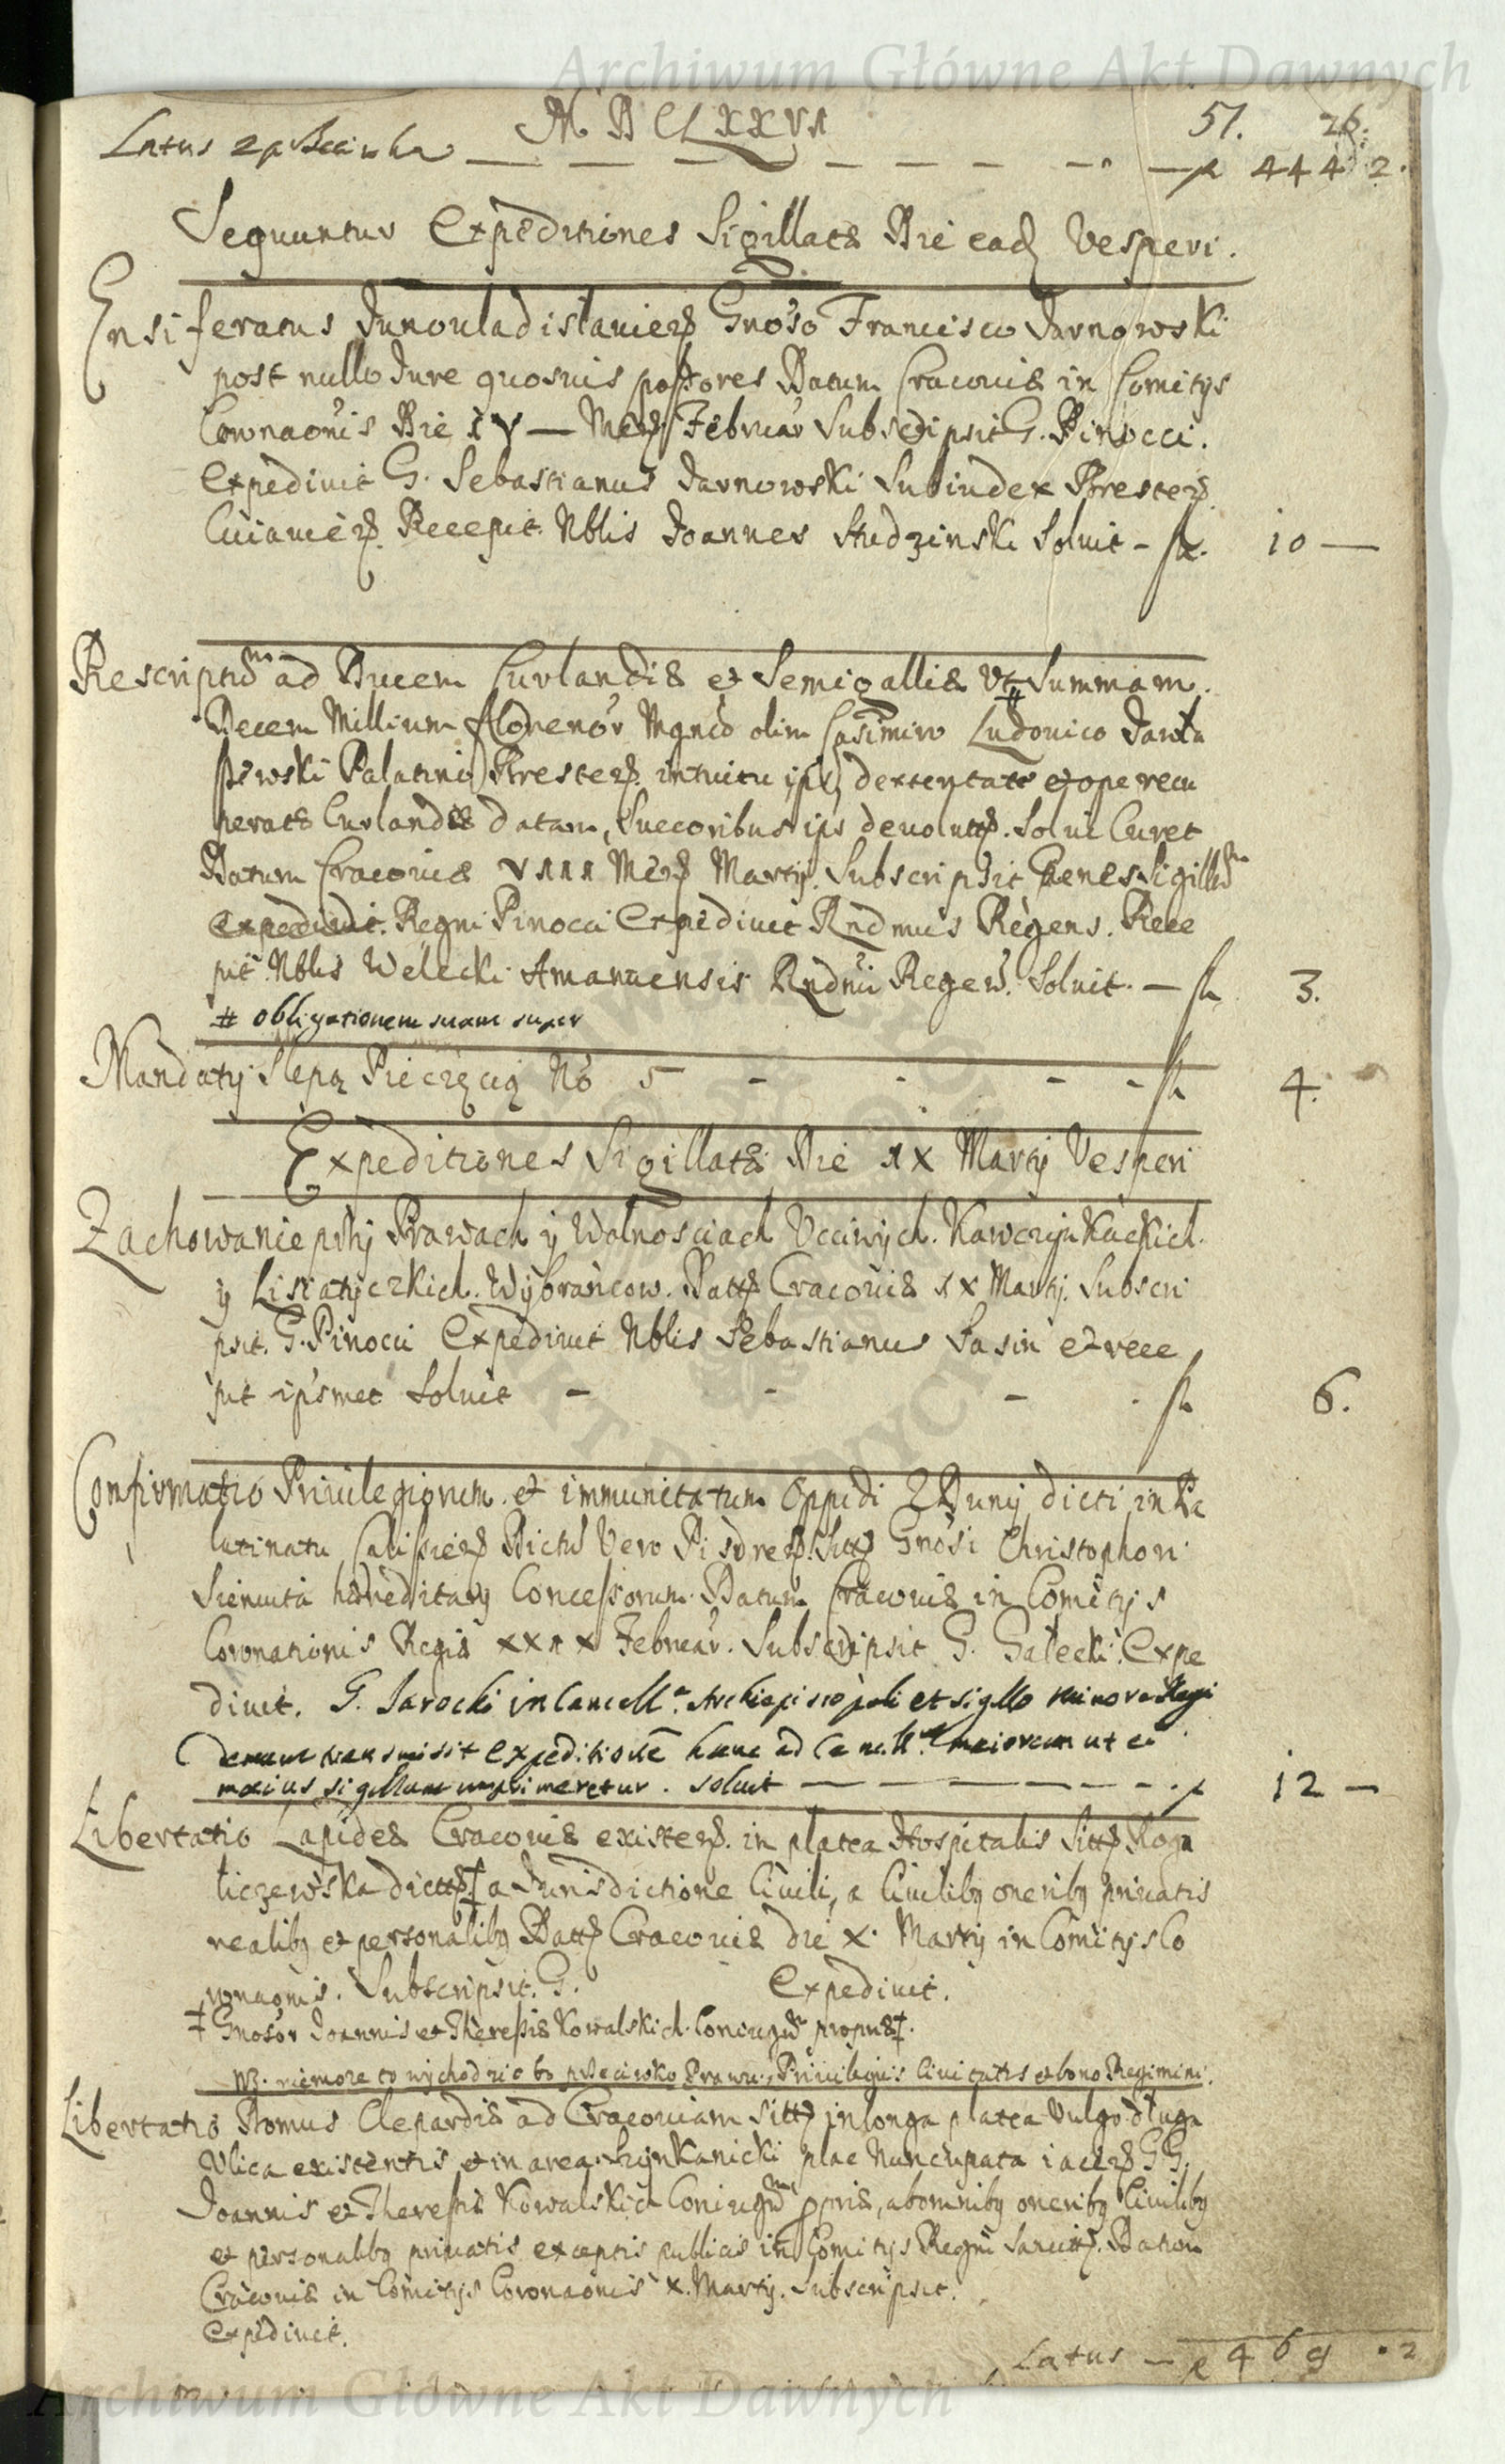 Archiwum Główne Akt Dawnych
MDCLXXVI 51. 26.
Latus 444 2.
Sequuntur Expeditiones Sigillatæ Die ead Vesperi.
Ensiferatus Junouladislauien Gnoso Francisco Jarnowski
post nullo Jure quosuis possores Datum Cracouiæ in Comitys
Coronaonis Die IV — Men Februar Subscripsit G. Pinocci.
Expediuit G. Sebastianus Jarnowski Subiudex Bresten
Cuiauien. Recepit Nblis Joannes Studzinski Soluit - fl. 10 —
Rescriptum ad Ducem Curlandiæ et Semigalliæ Vt # Summam
Decem Millium florenor Mgnco olim Casimiro Ludovico
Palatino Bresten. intuitu dexteritate et ope recu
peratæ Curlandiæ datam, Succoribus ips deuolut. Solui Curet
Datum Cracouiæ VIII Men Martij. Subscripsit Penes Sigillum
Regni Pinocci Expediuit Rndmus Regens. Rece
pit Nblis Welecki Amanuensis Rndmi Regen. Soluit. — fl 3.
# obligationem suam super
Mandaty Slepą Pieczęcią No 5 - - - - fl 4.
Expeditiones Sigillatæ Die IX Martij Vesperi
Zachowanie przÿ Prawach ÿ Wolnosciach Vcciwÿch.
ÿ Wÿbrańcow. Datt Cracouiæ IX Martij. Subscri
psit. G. Pinocci Expediuit Nblis Sebastianus Sasin et rece
pit ipsmet Soluit - - - . fl 6.
Confirmatio Priuilegiorum et immunitatum Oppidi Zduny dicti in Pa
latinatu Calissien Sitt Gnosi Christophori
Sieniuta hæreditary Concessorum. Datum Cracouiæ in Comitijs
Coronationis Regiæ Februar. Subscripsit G. Gałecki. Expe
diuit. G. Jarocki in Cancell.a Archiepiscopali et sigillo minore Regni
demum transmisit expeditionē hanc ad Cancell. maiorem ut ei
maius sigillum imprimeretur. soluit — — — — 12 —
Libertatio Lapideæ Cracouiæ existen. in platea Hospitalis Sitt
dictt ‡ a Jurisdictione Ciuili, a Ciuilibq oneribq priuatis
realibq et personalibq Datt Cracouiæ die X. Martij in Comitijs Co
ronaonis. Subscripsit. G. Expediuit.
‡ Gnosor Joannis et Theressiæ Kowalskich Coniugum propriæ ‡.
NB. niemoze to wychodzić bo przeciwko Prawu, Priuilegiis Ciuitatis et bono Regimini.
Libertatio Domus Clepardiæ ad Cracouiam Sitt in longa platea Vulgo długa
Vlica existentis et in area plac Nuncupata iacen GG.
Joannis et Theressiæ Kowalskich Coniugum ppriæ, ab omnibq oneribq Ciuilibq
et personalibq priuatis exceptis publicis in Comitijs Regni Sancitt. Datum
Cracouiæ in Comitijs Coronaonis X. Martij. Subscripsit.
Expediuit.
Latus — 469 . 2
Archiwum Główne Akt Dawnych